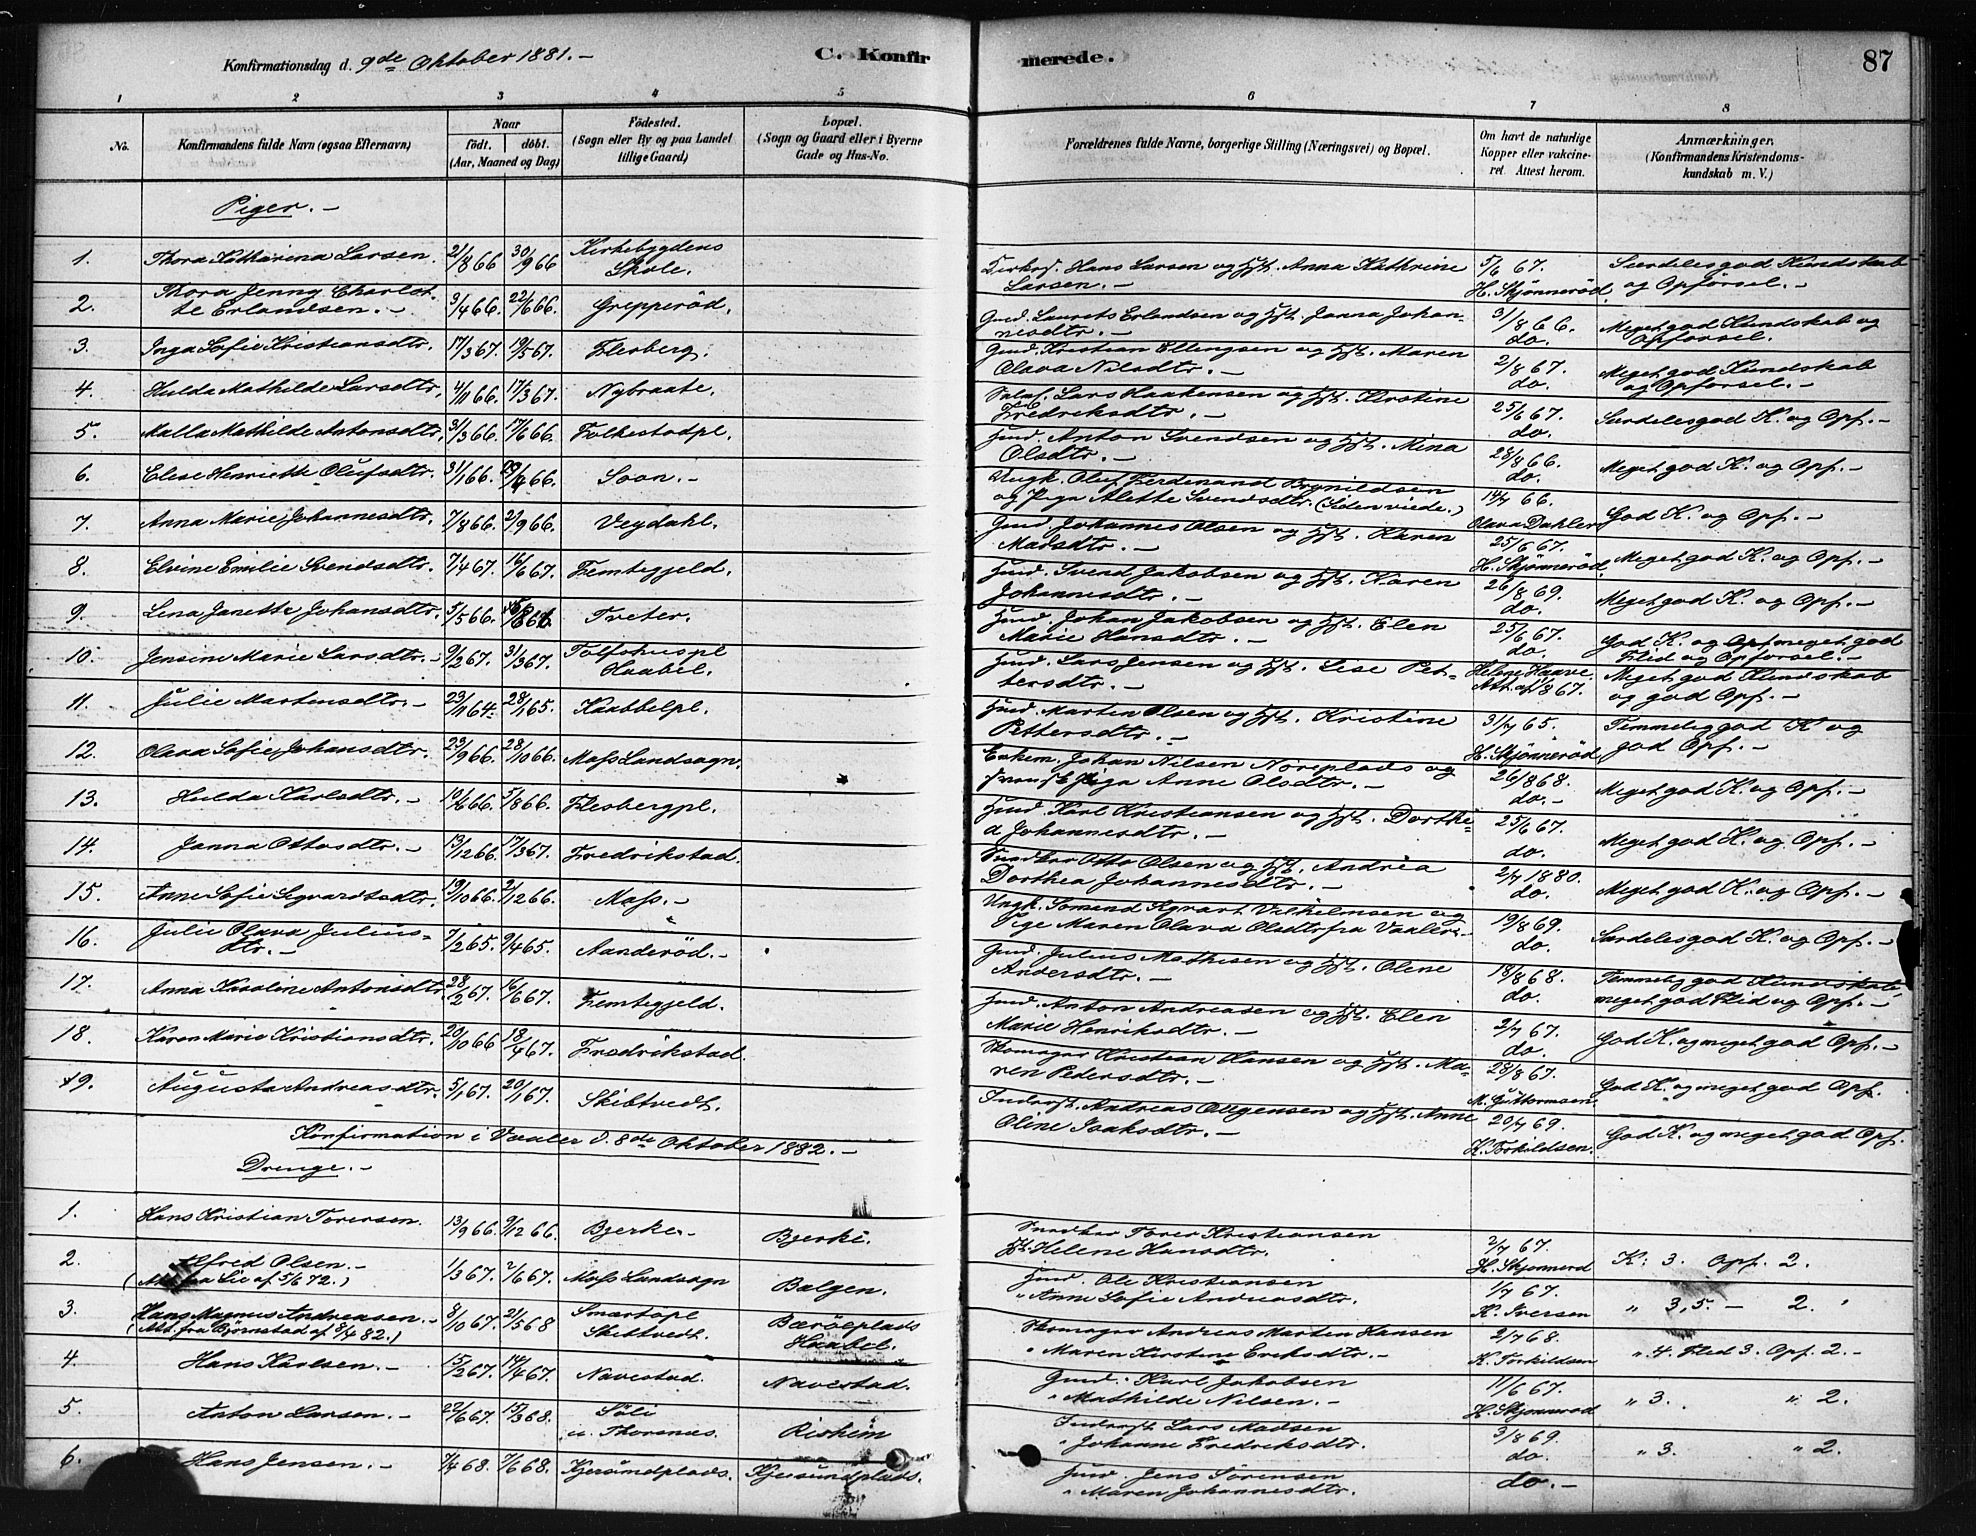 Konfirmationsdag d. 9de Oktober 1881. –
C. Konfirmerede.
87
1 2 3 4 5 6 7 8
No.
Konfirmandens fulde Navn (ogsaa Efternavn)
Naar
født. døbt.
(Aar, Maaned og Dag)
Fødested.
(Sogn eller By og paa Landet
tillige Gaard)
Bopæl.
(Sogn og Gaard eller i Byerne
Gade og Hus-No.
Forældrenes fulde Navne, borgerlige Stilling (Næringsvei) og Bopæl.
Om havt de naturlige
Kopper eller vakcine-
ret. Attest herom.
Anmærkninger.
(Konfirmandens Kristendoms-
kundskab m. V.)
Piger. –
1. Thora Katharina Larsen. 21/8 66 30/9 66 Kirkebygdens
Skole.
Hans Larsen og Hst. Anna Kathrine
Larsen. –
5/6 67.
H. Skjønnerød.
Særdeles god Kundskab
og Opførsel. –
2. Thora Jenny Charlot-
te Erlandsen. – 3/4 66. 22/6 66. Grepperød.
Gmd. Laurets Erlandsen og Hst. Janna Johan-
nesdtr. –
31/8 66.
do.
Meget god Kundskab og
Opførsel.
3. Inga Sofie Kristiansdtr. 17/3 67. 19/5 67. Flesberg.
Gmd. Kristian Ellingsen og Hst. Maren
Olava Nilsdtr. –
2/8 67.
do.
Meget god Kundskab
og Opførsel. –
4. Hulda Mathilde Larsdtr. 4/11 66. 17/3 67. Nybraate.
Lars Haakensen og Hst. Kirstine
Fredriksdtr. –
25/6 67.
do.
Særdeles god K. og Opf. –
5. Malla Mathilde Antonsdtr. 31/3 66. 17/6 66. Folkestadpl.
Hmd. Anton Svendsen og Hst. Mina
Olsdtr. –
28/8 66.
do.
Meget god K. og Opf. –
6. Elise Henriette Olufsdtr. 31/1 66. 29/4 66. Soon. –
Ungk. Oluf Ferdinand Brynildsen
og Pige Alette Svendsdtr. (Siden viede.)
14/7 66.
Olava Dahler
God K. og Opf. –
7. Anna Marie Johannesdtr. 7/8 66. 2/9 66. Vegdahl.
Gmd. Johannes Olsen og Hst. Karen
Madsdtr. –
25/6 67.
H. Skjønnerød.
Meget god K. og Opf. –
8. Elvine Emilie Svendsdtr. 7/4 67. 16/6 67. Femtegjeld.
Hmd. Svend Jakobsen og Hst. Karen
Johannesdtr. –
26/8 69.
do.
Meget god K. og Opf. –
9. Lina Janette Johansdtr. 5/5 66. Treter.
Hmd. Johan Jakobsen og Hst. Elen
Marie Hansdtr. –
25/6 67.
do.
God K. og Opf. meget god
Flid og Opførsel. –
10. Jensine Marie Larsdtr. – 9/2 67. 31/3 67. Folfohuspl
Haabel.
Hmd. Lars Jensen og Hst. Lise Pet-
tersdtr. –
Helene Haave.
Att. af 1/8 67.
Meget god Kundskab
og god Opf. –
11. Julie Martensdtr. – 23/11 64. 28/1 65. Haabbelpl.
Hmd. Marten Olsen og Hst. Kristine
Pettersdtr. –
31/7 65.
H. Skjønnerød.
Temmelig god K og
god Opf. –
12. Olava Sofie Johansdtr. 23/9 66. 28/10 66. Moss Landsogn.
Enkem. Johan Nilsen Noreplads og
Pige Anne Olsdtr. –
26/8 68.
do. –
Meget god K. og Opf. –
13. Hulda Karlsdtr. – 5/8 66. Flesbergpl.
Hmd. Karl Kristiansen og Hst. Dorthe-
a Johannesdtr. –
25/6 67.
do.
Meget god K. og Opf. –
14. Janna Ottosdtr. – 13/12 66. 17/3 67. Fredrikstad.
Otto Olsen og Hst. Andrea
Dorthea Johannesdtr. –
2/7 1880.
do.
Meget god K. og Opf. –
15. Anne Sofie Sigvardsdtr. 19/10 66. 2/12 66. Moss. –
Ungk. Sømand Sigvart Vilhelmsen og
Pige Maren Olava Olsdtr fra Vaaler. –
19/8 69.
do.
Særdeles god K. og Opf. –
16. Julie Olava Julius-
dtr. – 7/2 65. 9/4 65. Aanderød. –
Gmd. Julius Mathisen og Hst. Oline
Andersdtr. –
18/8 68.
do.
Temmelig god Kundskab,
meget god Flid og Opf. –
17. Anna Karoline Antonsdtr. 28/2 67. 16/6 67. Femtegjeld.
Hmd. Anton Andreasen og Hst. Elen
Marie Henriksdtr. –
2/7 67.
do.
God K. og meget god Opf. –
18. Karen Marie Kristiansdtr. 20/10 66 18/4 67. Fredrikstad.
Skomager Kristian Hansen og Hst. Ma-
ren Pedersdtr. –
28/8 67.
M. Guttormsen.
God K. og meget god Opf.
19. Augusta Andreasdtr. 5/1 67. 20/1 67. Skibtvedt.
Inderst. Andreas Ottgensen og Hst. Anne
Oline Isaksdtr. –
20/7 69.
K. Torkildsen.
God K. og meget god Opf.
Konfirmation i Vaaler d. 8de Oktober 1882. –
Drenge. –
1. Hans Kristian Torersen. 13/9 66. 9/12 66. Bjerke. – Bjerke.
Torer Kristiansen
Hst. Helene Hansdtr.
2/7 67.
H. Skjønnerd
K: 3. Opf. 2.
2. Alfred Olsen. –
(Att. fra Lie af 5/6 72.) 1/3 67. 2/6 67. Moss Landsogn Balgen.
Hmd. Ole Kristiansen
" Anne Sofie Andreasdtr.
1/7 67
K. Iversen
" 3,5. – 2. "
3. Hans Magnus Andreasen. –
(Att. fra Bjørnstad af 8/4 82.) 8/10 67. 21/5 68 Smørtopl
Skibtvedt. Bærøeplads
Haabel.
Skomager Andreas Marten Hansen
" Maren Kirstine Eriksdtr. –
2/7 68.
K. Torkildsen
" 4. Flid 3. Opf. 2. –
4. Hans Karlsen. – 15/2 67. 14/4 67. Navestad. Navestad.
Gmd. Karl Jakobsen
" Mathilde Nilsen. –
11/6 67.
H. Skjønnerød
" 3. " 2.
5. Anton Larsen. – 22/6 67. 15/3 68. Søli
i Thorsnes. Risheim
Inderst Lars Madsen
" Johanne Fredriksdtr.
3/8 69.
do.
" 3. " 2.
6. Hans Jensen. – 7/4 68. 7/6 68. Kjersundplads. Kjersundplads.
Hmd. Jens Sørensen
" Maren Johannesdtr.
do. –